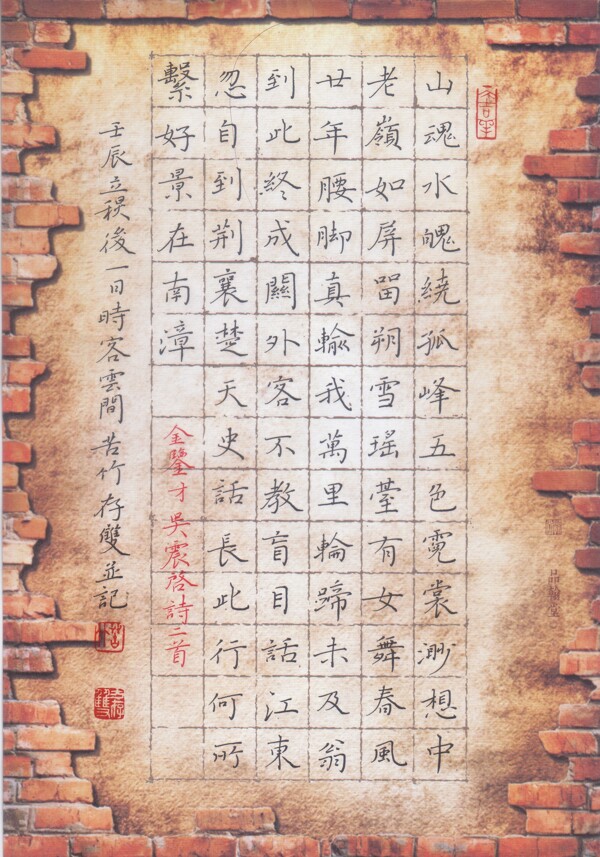 山魂水魄繞孤峰五色霓裳渺想中
老嶺如屏留朔雪瑤臺有女舞春風
廿年腰脚真輸我萬里輪蹄未及翁
到此終成關外客不教盲目話江東
忽自到荆襄楚天史話長此行何所
繫好景在南漳
金鑒才吳震啓詩二首
壬辰立秋後一日時客雲間苦竹存雙並記
苦竹
存雙